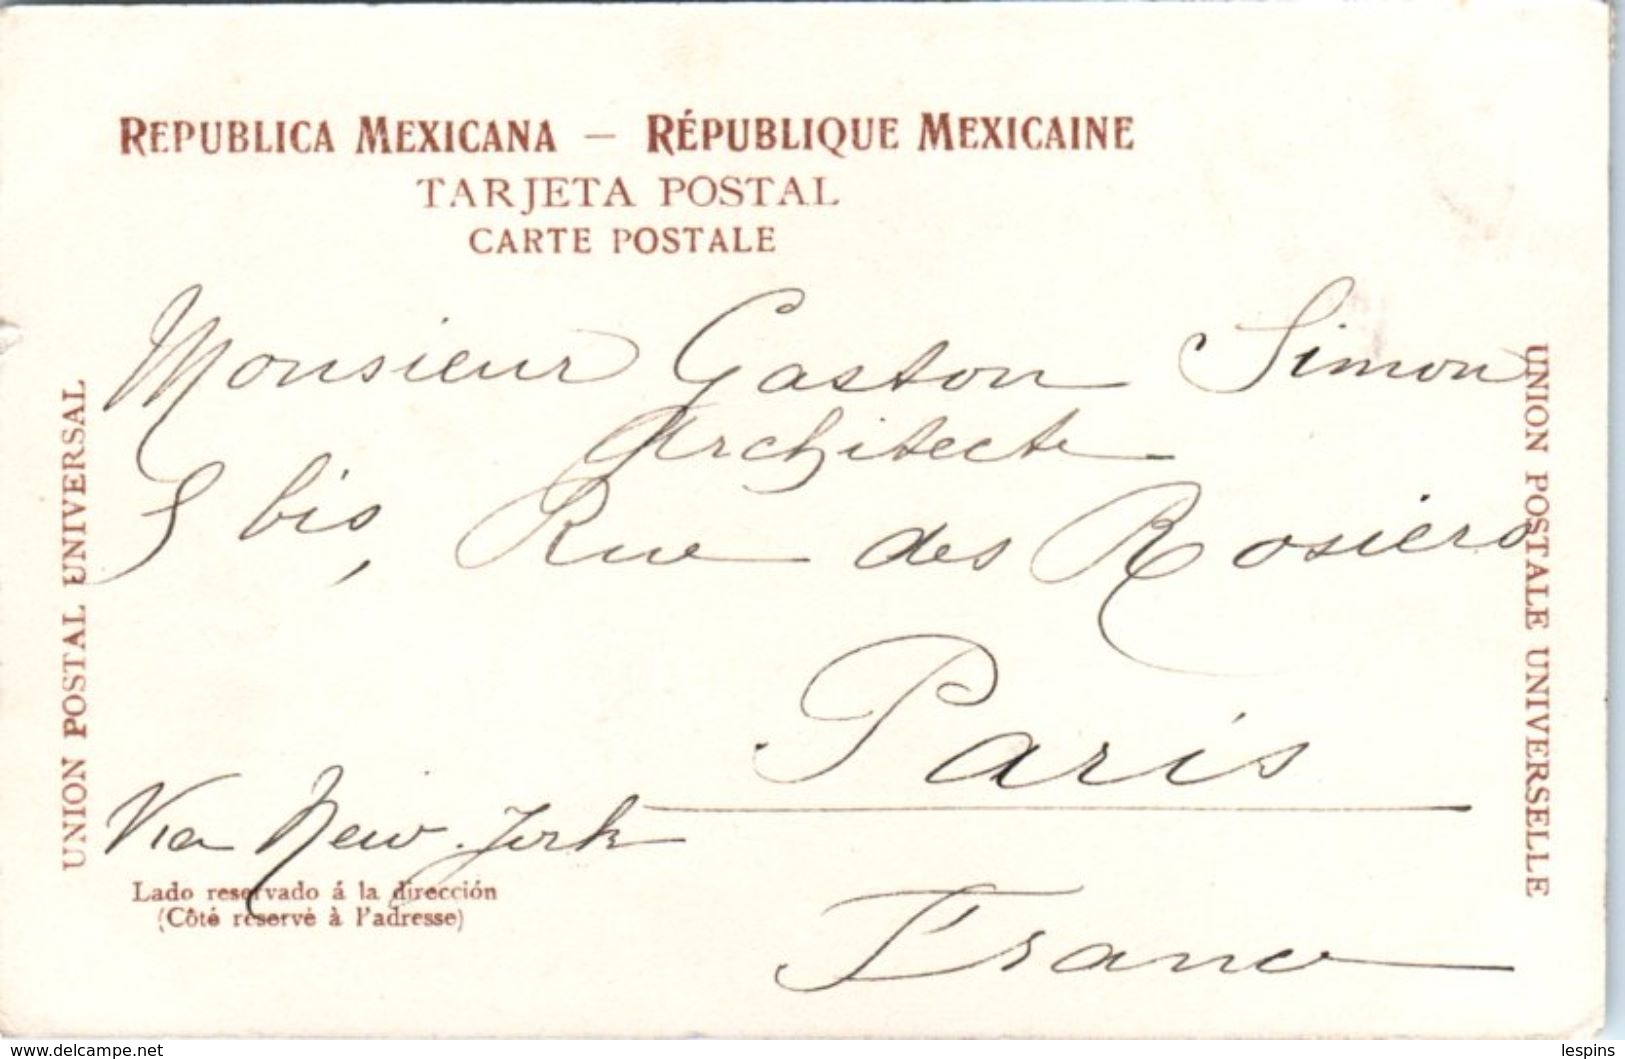 REPUBLICA MEXICANA — RÉPUBLIQUE MEXICAINE
TARJETA POSTAL
CARTE POSTALE
UNION POSTAL UNIVERSAL
Monsieur Gaston Simon
Architecte
bis, Rue des Rosiers
Paris
Via New-York
France
Lado reservado á la dirección
(Côté réservé à l'adresse)
UNION POSTALE UNIVERSELLE
www.delcampe.net
lespins